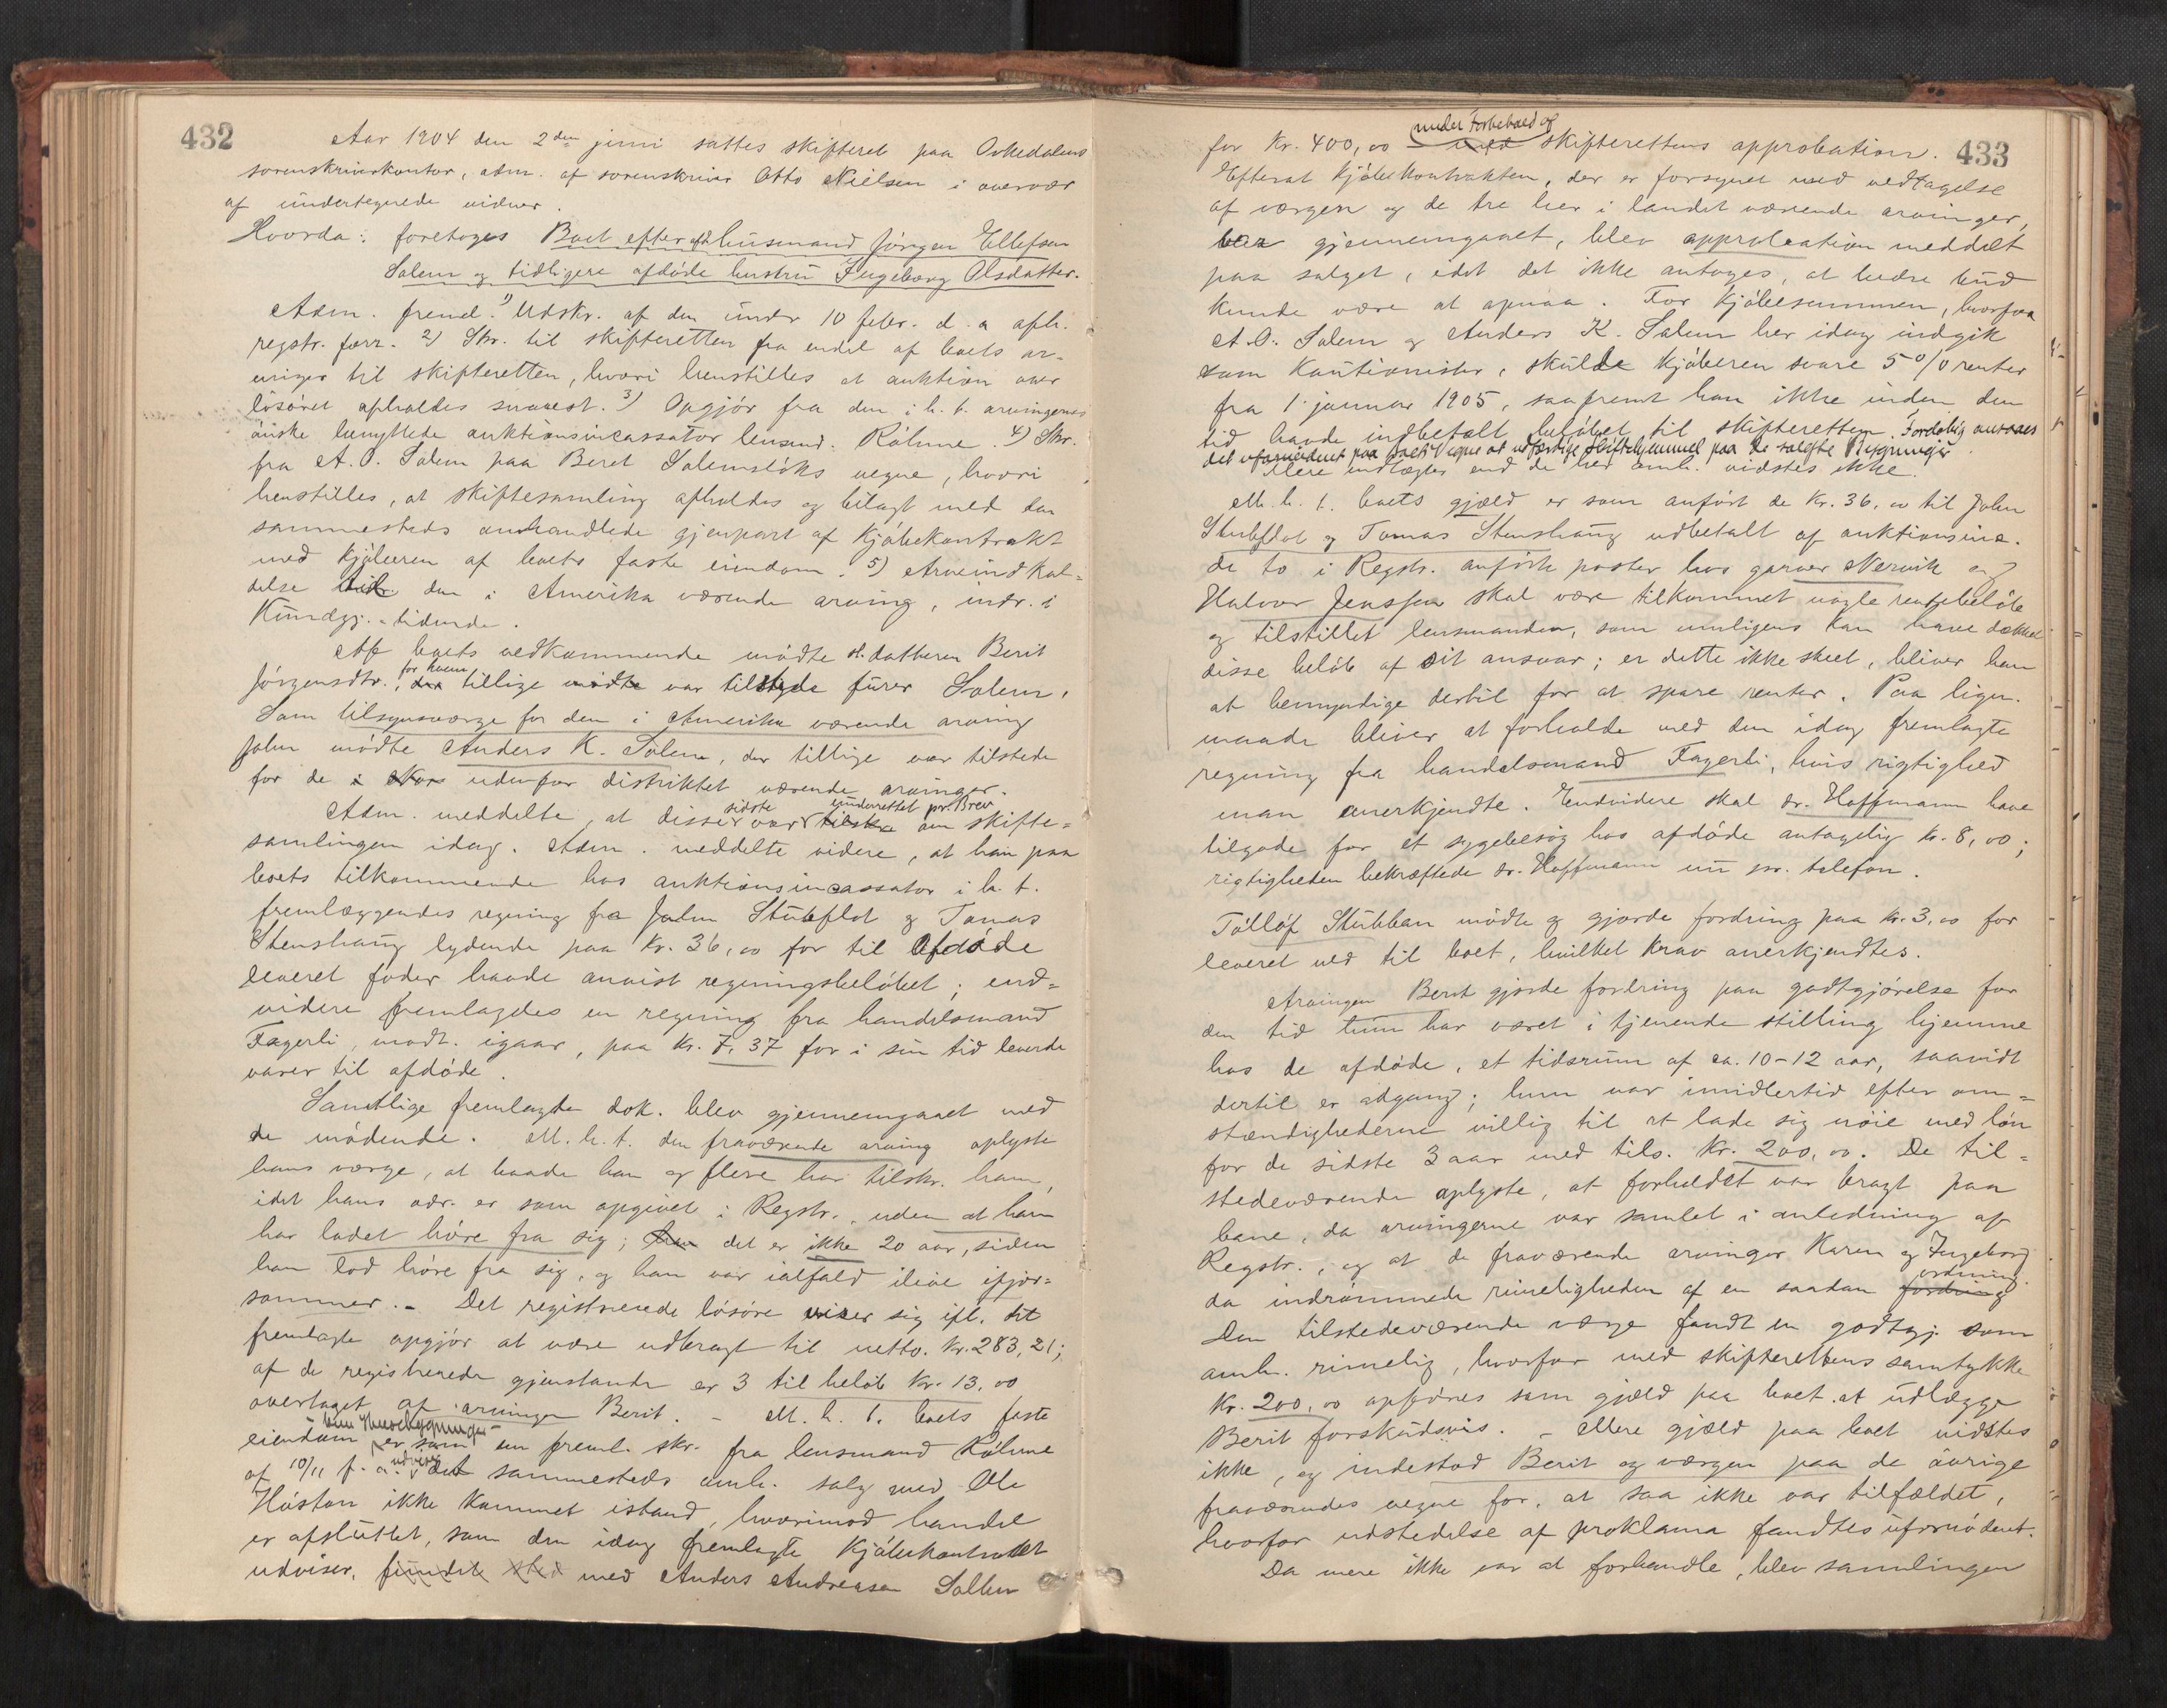 432
Aar 1904 den 2den juni sattes skifteret paa Orkedalens
sorenskriverkontor, adm. af sorenskriver Otto Nielsen i overvær
af undertegnede vidner.
Hvorda: foretoges Boet efter afd. husmand Jörgen Ellefsen
Solem og tidligere afdöde hustru Ingeborg Olsdatter.
Adm. freml. 1) Udskr. af den under 10 febr. d. a afh.
regstr. forr. 2) Skr. til skifteretten fra endel af boets ar-
vinger til skifteretten, hvori henstilles at auktion over
lösöret afholdes snarest. 3) Opgjör fra den i h. t. arvingernes
önske benyttede auktionsincassator lensmd. Röhme. 4) Skr.
fra A. O. Solem paa Beret Solemslöks vegne, hvori
henstilles, at skiftesamling afholdes og bilagt med den
sammesteds omhandlede gjenpart af Kjöbekontrakt
med kjöberen af boets faste eiendom. 5) Arveindkal-
delse til den i Amerika værende arving, indr. i
Kundgj.-tidende.
Af boets vedkommende mödte st. datteren Berit
Jörgensdtr., for hvem der tillige mödte var tilstede furer Solem.
Som tilsynsværge for den i Amerika værende arving
John mödte Anders K. Solem, der tillige var tilstede
for de i udenfor distriktet værende arvinger.
Adm. meddelte, at disse sidste var underrettet pr. Brev tilskr. om skifte-
samlingen idag. Adm. meddelte videre, at han paa
boets tilkommende hos auktionsincassator i h. t.
fremlæggendes regning fra John Stubflot og Tomas
Stenshaug lydende paa Kr. 36,00 for til afdöde
leveret foder havde anvist regningsbelöbet; end-
videre fremlagdes en regning fra handelsmand
Fagerli, modt. igaar, paa Kr. 7,37 for i sin tid leverde
varer til afdöde.
Samtlige fremlagte dok. blev gjennemgaaet med
de mödende. M. h. t. den fraværende arving oplyste
hans værge, at baade han og flere har tilskr. ham,
idet hans adr. er som opgivet i Regstr., uden at han
har ladet höre fra sig; det er ikke 20 aar, siden
han lod höre fra sig, og han var ialfald ilive ifjor-
sommer. - Det registrerede lösöre viser sig ifl. det
fremlagte opgjör at være udbragt til netto. Kr. 283,21;
af de registrerede gjenstande er 3 til beløb Kr. 13,00
overtaget af arvingen Berit. - M. h. t. boets faste
eiendom er som en freml. skr. fra lensmand Röhme
af 10/11 f. a. udviser det sammesteds omh. salg med Ole
Höston ikke kommet istand, hvorimod handel
er afsluttet, som den idag fremlagte Kjöbekontrakt
udviser, fundet sted med Anders Andreasen Sollien
433
for Kr. 400,00 under Forbehold af med skifterettens approbation.
Efterat Kjöbekontrakten, der er forsynet med vedtagelse
af værgen og de tre her i landet værende arvinger,
var gjennemgaaet, blev approbation meddelt
paa salget, idet det ikke antoges, at bedre bud
kunde være at opnaa. For Kjöbesummen, hvorfor
A. O. Solem og Anders K. Solem her idag indgik
som Kautionister, skulde Kjöberen svare 5 % renter
fra 1. januar 1905, saafremt han ikke inden den
tid havde indbetalt belöbet til skifteretten. Foreløbig ansaaes
det ufornödent paa boets vegne at udfærdige skiftehjemmel paa de solgte Bygninger.
Flere indtægter end de her omh. vidstes ikke.
M. h. t. boets gjæld er som anfört de Kr. 36,00 til John
Stubflot og Tomas Stenshaug udbetalt af auktionsinc.
de to i Regstr. anförte poster hos garver Nervik og
Halvor Jenssen skal være tilkommet nogle rentebelöb
og tilstillet lensmanden, som muligens kan have dækket
disse belöb af sit ansvar; er dette ikke skeet, bliver han
at bemyndige dertil for at spare renter. Paa lign.
maade bliver at forholde med den idag fremlagte
regning fra handelsmand Fagerli, hvis rigtighed
man anerkjendte. Endvidere skal dr. Hoffmann have
tilgode for et sygebesög hos afdöde antagelig kr. 8,00;
rigtigheden bekræftede dr. Hoffmann nu pr. telefon.
Tollöf Stubban mödte og gjorde fordring paa kr. 3,00 for
leveret ved til boet, hvilket krav anerkjendtes.
Arvingen Berit gjorde fordring paa godtgjörelse for
den tid hun har været i tjenende stilling hjemme
hos de afdöde, et tidsrum af ca. 10-12 aar, saavidt
dertil er adgang; hun var imidlertid efter om-
stændighederne villig til at lade sig nöie med lön
for de sidste 3 aar med tils. Kr. 200,00. De til-
stedeværende oplyste, at forholdet var bragt paa
bane, da arvingerne var samlet i anledning af
Regstr., og at de fraværende arvinger Karen og Ingeborg
da indrömmede rimeligheden af en saadan fordring ordning.
Den tilstedeværende værge fandt en godtgj. som
omh. rimelig, hvorfor med skifterettens samtykke
Kr. 200,00 opföres som gjæld paa boet at udlægge
Berit forskudsvis. - Mere gjæld paa boet vidstes
ikke, og indestod Berit og værgen paa de övrige
fraværendes vegne for, at saa ikke var tilfældet,
hvorfor udstedelse af proklama fandtes ufornödent.
Da mere ikke var at forhandle, blev samlingen